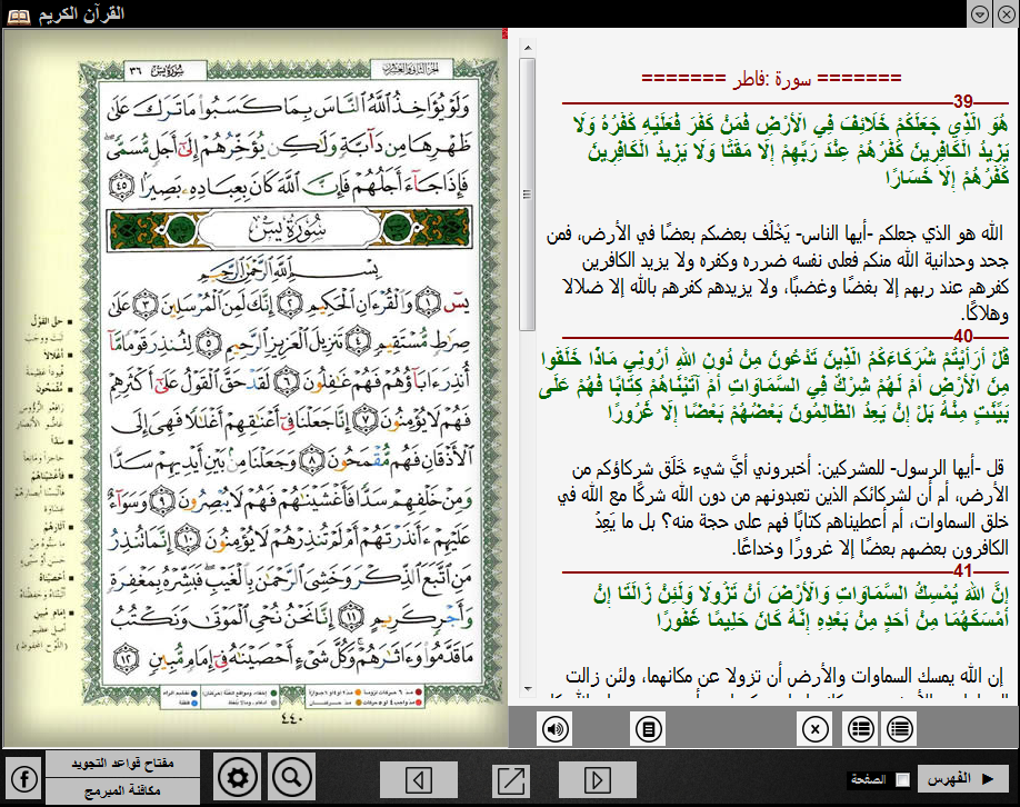 القرآن الكريم
سورة يس ٣٦
الجزء الثاني والعشرون
وَلَوْ يُؤَاخِذُ اللَّهُ النَّاسَ بِمَا كَسَبُوا مَا تَرَكَ عَلَىٰ
ظَهْرِهَا مِن دَابَّةٍ وَلَٰكِن يُؤَخِّرُهُمْ إِلَىٰ أَجَلٍ مُّسَمًّى ۖ
فَإِذَا جَاءَ أَجَلُهُمْ فَإِنَّ اللَّهَ كَانَ بِعِبَادِهِ بَصِيرًا ٤٥
سُورَةُ يسٓ
بِسْمِ اللَّهِ الرَّحْمَٰنِ الرَّحِيمِ
يسٓ ١ وَالْقُرْءَانِ الْحَكِيمِ ٢ إِنَّكَ لَمِنَ الْمُرْسَلِينَ ٣ عَلَىٰ
صِرَٰطٍ مُّسْتَقِيمٍ ٤ تَنزِيلَ الْعَزِيزِ الرَّحِيمِ ٥ لِتُنذِرَ قَوْمًا مَّا
أُنذِرَ ءَابَاؤُهُمْ فَهُمْ غَٰفِلُونَ ٦ لَقَدْ حَقَّ الْقَوْلُ عَلَىٰ أَكْثَرِهِمْ
فَهُمْ لَا يُؤْمِنُونَ ٧ إِنَّا جَعَلْنَا فِي أَعْنَٰقِهِمْ أَغْلَٰلًا فَهِيَ إِلَى
الْأَذْقَانِ فَهُم مُّقْمَحُونَ ٨ وَجَعَلْنَا مِن بَيْنِ أَيْدِيهِمْ سَدًّا
وَمِنْ خَلْفِهِمْ سَدًّا فَأَغْشَيْنَٰهُمْ فَهُمْ لَا يُبْصِرُونَ ٩ وَسَوَاءٌ
عَلَيْهِمْ ءَأَنذَرْتَهُمْ أَمْ لَمْ تُنذِرْهُمْ لَا يُؤْمِنُونَ ١٠ إِنَّمَا تُنذِرُ
مَنِ اتَّبَعَ الذِّكْرَ وَخَشِيَ الرَّحْمَٰنَ بِالْغَيْبِ ۖ فَبَشِّرْهُ بِمَغْفِرَةٍ
وَأَجْرٍ كَرِيمٍ ١١ إِنَّا نَحْنُ نُحْيِ الْمَوْتَىٰ وَنَكْتُبُ
مَا قَدَّمُوا وَءَاثَٰرَهُمْ ۚ وَكُلَّ شَيْءٍ أَحْصَيْنَٰهُ فِي إِمَامٍ مُّبِينٍ ١٢
٤٤٠
حق القول
ثبت ووجب
أغلالاً
قيوداً عظيمة
مُقمحون
رافعو الرؤوس
غاضّو الأبصار
سداً
حاجزاً ومانعاً
فأغشيناهم
فألبسنا أبصارهم
غشاوة
آثارهم
ما سنّوه من
حسن أو سيّئ
أحصيناه
أثبتناه وحفظناه
إمام مبين
أصل عظيم
(اللوح المحفوظ)
======= سورة :فاطر =======
39
هُوَ الَّذِي جَعَلَكُمْ خَلَائِفَ فِي الْأَرْضِ فَمَنْ كَفَرَ فَعَلَيْهِ كُفْرُهُ وَلَا
يَزِيدُ الْكَافِرِينَ كُفْرُهُمْ عِنْدَ رَبِّهِمْ إِلَّا مَقْتًا وَلَا يَزِيدُ الْكَافِرِينَ
كُفْرُهُمْ إِلَّا خَسَارًا
الله هو الذي جعلكم -أيها الناس- يَخْلُف بعضكم بعضًا في الأرض، فمن
جحد وحدانية الله منكم فعلى نفسه ضرره وكفره ولا يزيد الكافرين
كفرهم عند ربهم إلا بغضًا وغضبًا، ولا يزيدهم كفرهم بالله إلا ضلالا
وهلاكًا.
40
قُلْ أَرَأَيْتُمْ شُرَكَاءَكُمُ الَّذِينَ تَدْعُونَ مِنْ دُونِ اللَّهِ أَرُونِي مَاذَا خَلَقُوا
مِنَ الْأَرْضِ أَمْ لَهُمْ شِرْكٌ فِي السَّمَاوَاتِ أَمْ آتَيْنَاهُمْ كِتَابًا فَهُمْ عَلَى
بَيِّنَتٍ مِنْهُ بَلْ إِنْ يَعِدُ الظَّالِمُونَ بَعْضُهُمْ بَعْضًا إِلَّا غُرُورًا
قل -أيها الرسول- للمشركين: أخبروني أيَّ شيء خَلَق شركاؤكم من
الأرض، أم أن لشركائكم الذين تعبدونهم من دون الله شركًا مع الله في
خلق السماوات، أم أعطيناهم كتابًا فهم على حجة منه؟ بل ما يَعِدُ
الكافرون بعضهم بعضًا إلا غرورًا وخداعًا.
41
إِنَّ اللَّهَ يُمْسِكُ السَّمَاوَاتِ وَالْأَرْضَ أَنْ تَزُولَا وَلَئِنْ زَالَتَا إِنْ
أَمْسَكَهُمَا مِنْ أَحَدٍ مِنْ بَعْدِهِ إِنَّهُ كَانَ حَلِيمًا غَفُورًا
إن الله يمسك السماوات والأرض أن تزولا عن مكانهما، ولئن زالت
مفتاح قواعد التجويد
مكافئة المبرمج
الصفحة
الفهرس